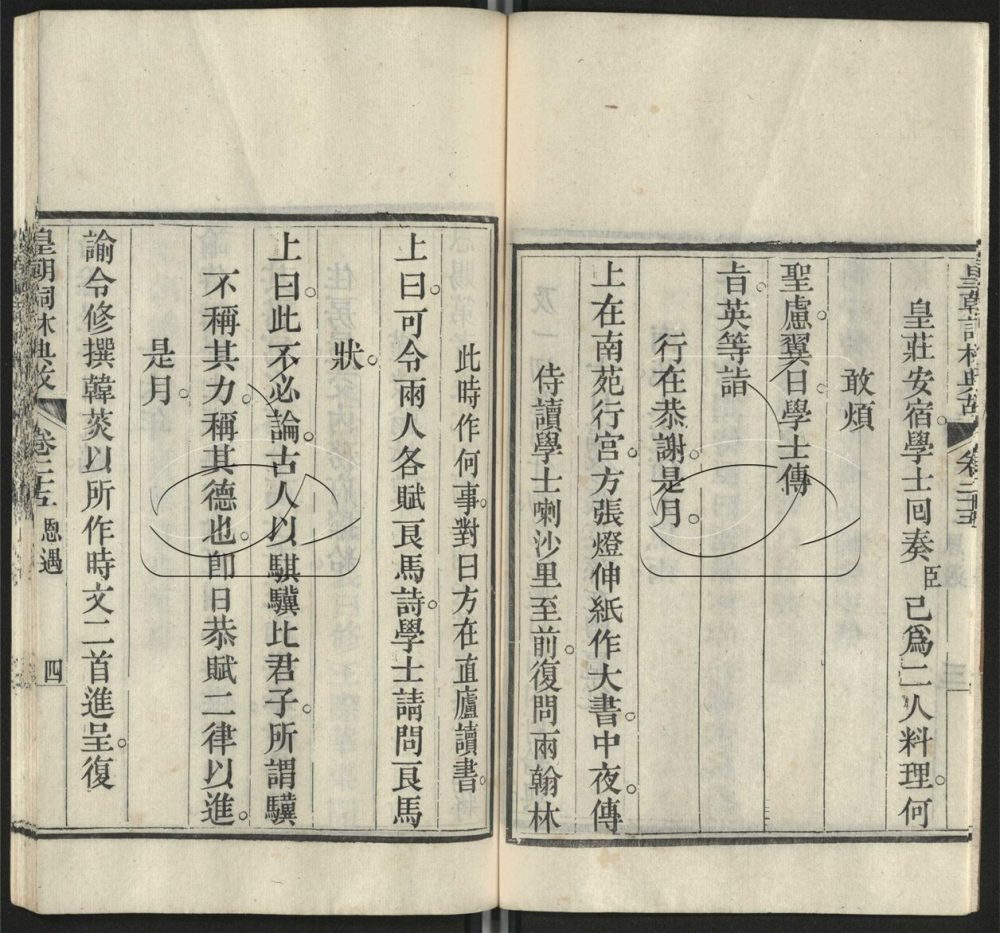 皇莊安宿。學士回奏臣已爲二人料理。何
敢煩
聖慮。翼日。學士傳
旨。英等詣
行在恭謝。是月。
上在南苑行宮。方張燈伸紙作大書。中夜。傳
侍讀學士喇沙里至前。復問兩翰林
此時作何事。對曰方在直廬讀書。
上曰。可令兩人各賦良馬詩。學士請問良馬
狀。
上曰。此不必論。古人以騏驥比君子。所謂驥
不稱其力。稱其德也。卽日恭賦二律以進。
是月。
諭令修撰韓菼以所作時文二首進呈。復
皇朝詞林典故 卷二十五 恩遇 四